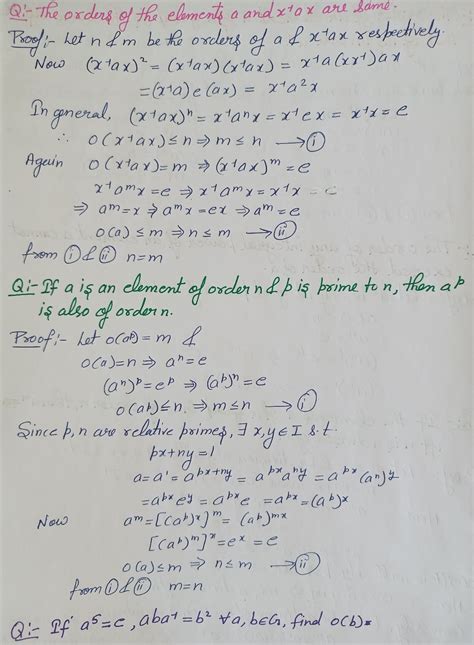 Q:- The orders of the elements a and x⁻¹ax are same.
Proof:- Let n & m be the orders of a & x⁻¹ax respectively.
Now (x⁻¹ax)² = (x⁻¹ax)(x⁻¹ax) = x⁻¹a(xx⁻¹)ax
= (x⁻¹a)e(ax) = x⁻¹a²x
In general, (x⁻¹ax)ⁿ = x⁻¹aⁿx = x⁻¹ex = x⁻¹x = e
∴ o(x⁻¹ax) ≤ n ⇒ m ≤ n → (i)
Again o(x⁻¹ax) = m ⇒ (x⁻¹ax)ᵐ = e
x⁻¹aᵐx = e ⇒ x⁻¹aᵐx = x⁻¹x = e
⇒ aᵐ = x ⇒ aᵐx = ex ⇒ aᵐ = e
o(a) ≤ m ⇒ n ≤ m → (ii)
from (i) & (ii) n = m
Q:- If a is an element of order n & p is prime to n, then aᵖ
is also of order n.
Proof:- Let o(aᵖ) = m &
o(a) = n ⇒ aⁿ = e
(aⁿ)ᵖ = eᵖ ⇒ (aᵖ)ⁿ = e
o(aᵖ) ≤ n ⇒ m ≤ n → (i)
Since p, n are relative primes, ∃ x, y ∈ I s.t.
px + ny = 1
a = a¹ = aᵖˣ⁺ⁿʸ = aᵖˣaⁿʸ = aᵖˣ(aⁿ)ʸ
= aᵖˣeʸ = aᵖˣe = aᵖˣ = (aᵖ)ˣ
Now aᵐ = [(aᵖ)ˣ]ᵐ = (aᵖ)ᵐˣ
[(aᵖ)ᵐ]ˣ = eˣ = e
o(a) ≤ m ⇒ n ≤ m → (ii)
from (i) & (ii) m = n
Q:- If a⁵ = e, aba⁻¹ = b² ∀ a, b ∈ G, find o(b) =